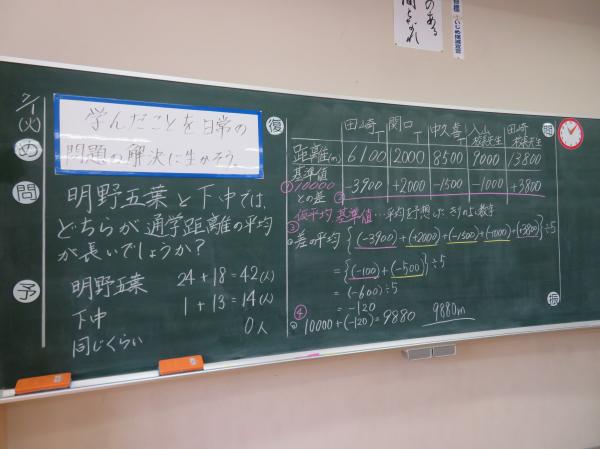 のある
いじめ撲滅宣言
7/1
(火)
め
学んだことを日常の
問題の解決に生かそう。
問
明野五葉と下中では、
どちらが通学距離の平均
が長いでしょうか?
予
明野五葉 24+18=42(人)
下中 1+13=14(人)
同じくらい 0人
復
田山崎T 関口T 中久喜T 入山校長先生 田崎校長先生
距離(m) 6100 12000 8500 9000 13800
①10000との差 基準値 -3900 +2000 -1500 -1000 +3800
②
③仮平均 基準値…平均を予想したきりのよい数字
差の平均 {(-3900)+(+2000)+(-1500)+(-1000)+(+3800)}÷5
={(-100)+(-500)}÷5
=(-600)÷5
=-120
④
10000+(-120)=9880 9880m
問
振